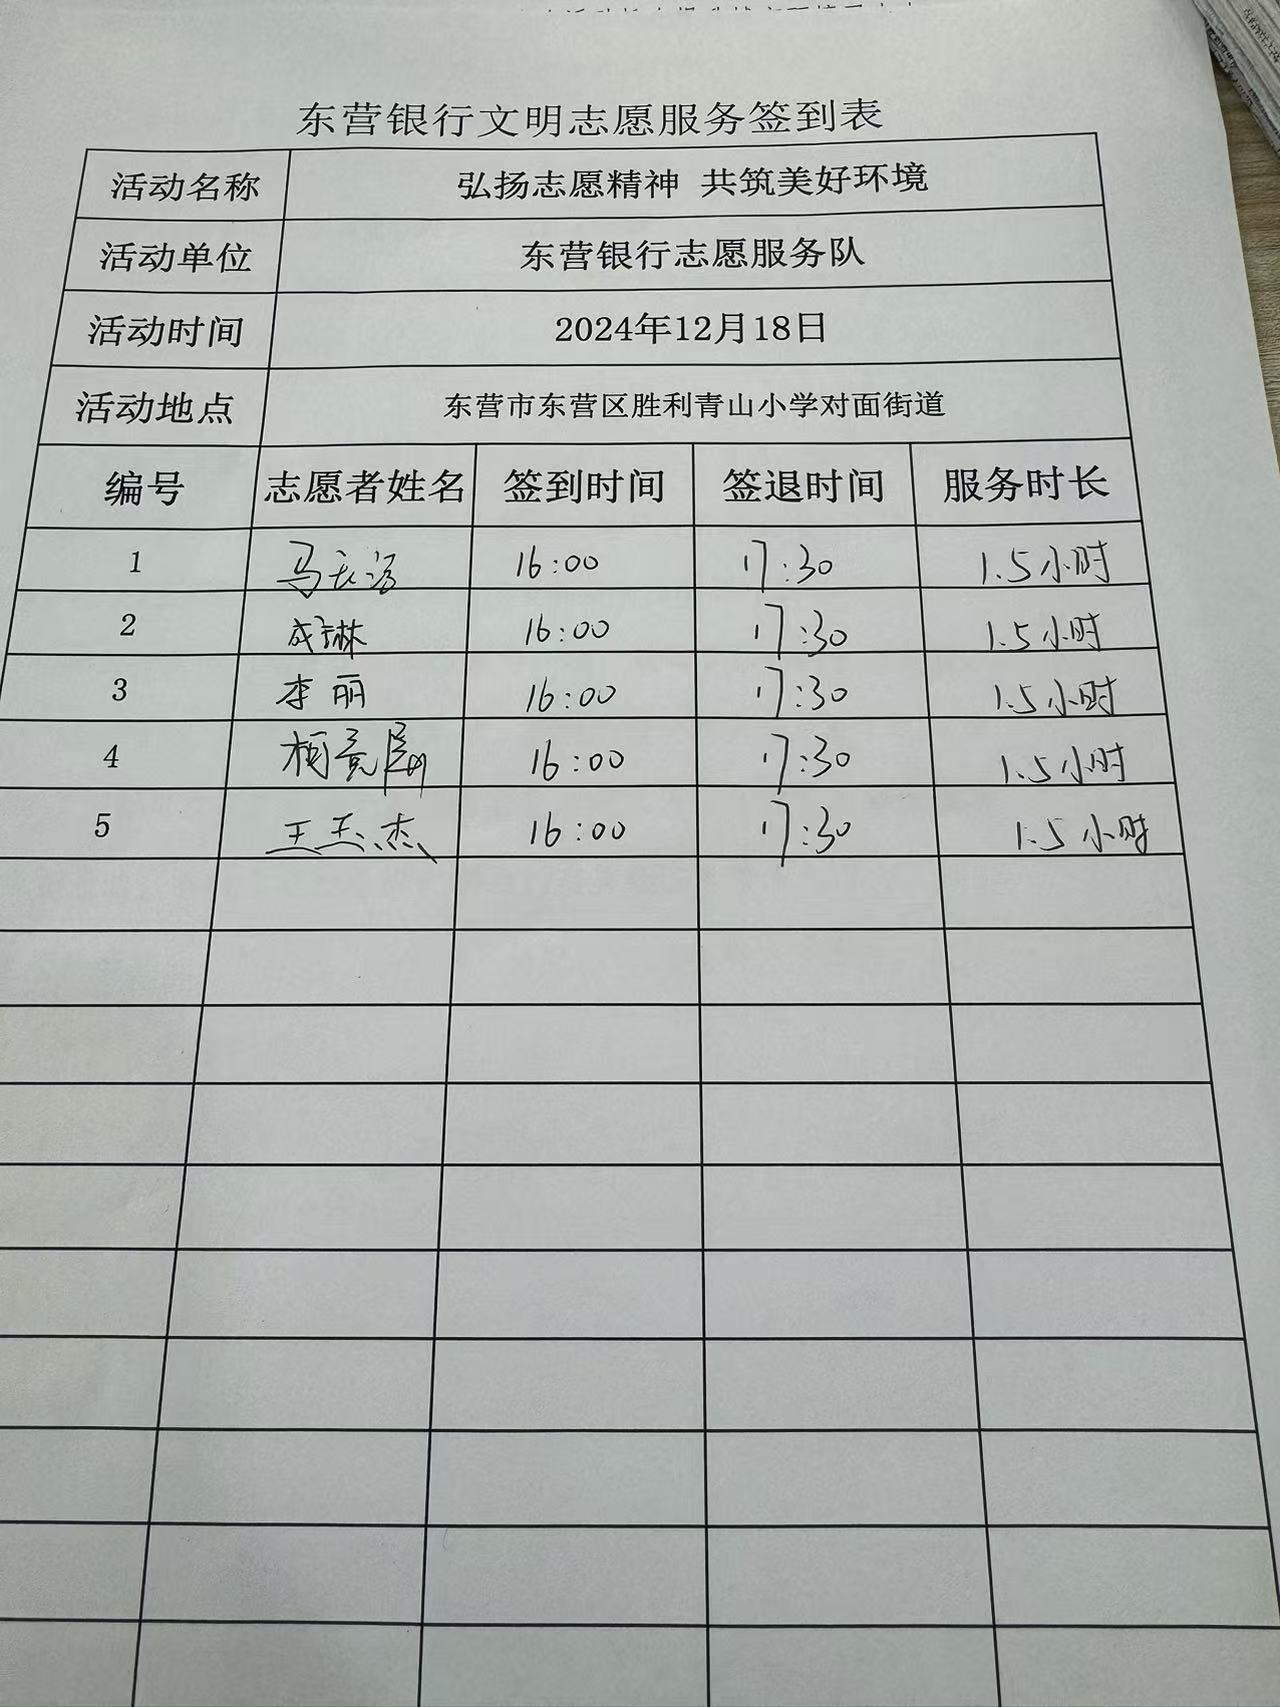 东营银行文明志愿服务签到表
活动名称 弘扬志愿精神 共筑美好环境
活动单位 东营银行志愿服务队
活动时间 2024年12月18日
活动地点 东营市东营区胜利青山小学对面街道
编号 志愿者姓名 签到时间 签退时间 服务时长
1 马 16:00 17:30 1.5小时
2 成琳 16:00 17:30 1.5小时
3 李丽 16:00 17:30 1.5小时
4 16:00 17:30 1.5小时
5 王玉杰 16:00 17:30 1.5小时